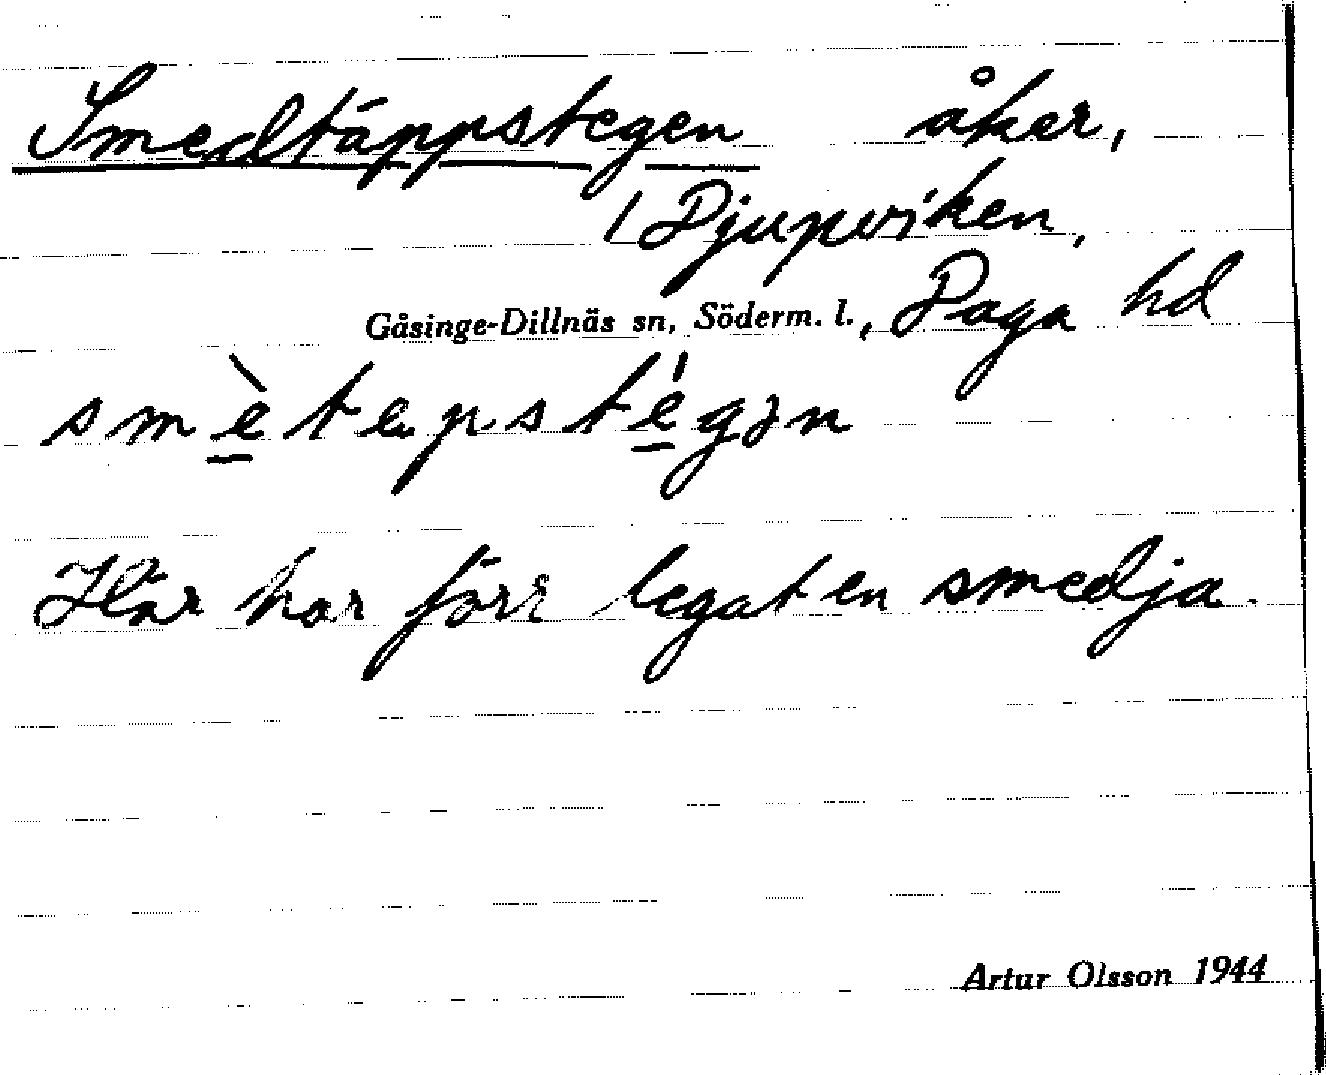 Smedtäppstegen åker,
/ Djupviken,
Gåsinge-Dillnäs sn, Söderm. l., Daga hd
smètepstégɘn
Här har förr legat en smedja.
Artur Olsson 1944